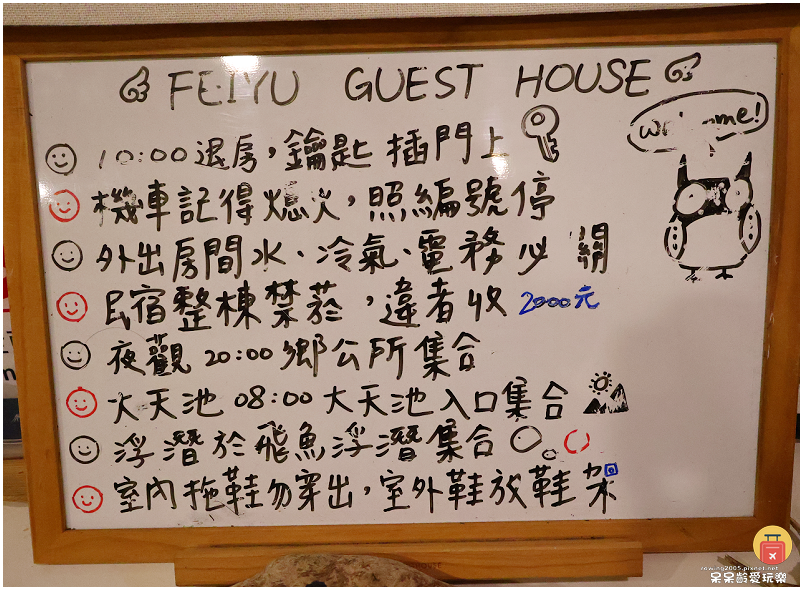 FEIYU GUEST HOUSE
10:00退房,鑰匙 插門上
機車記得熄火,照編號停
外出房間水、冷氣、電務必 關
民宿整棟禁菸,違者收 2000元
夜觀 20:00 鄉公所集合
大天池 08:00 大天池入口集合
浮潛於飛魚浮潛集合
室內拖鞋勿穿出,室外鞋放鞋架
rowing2005.pixnet.net
呆呆齡愛玩樂